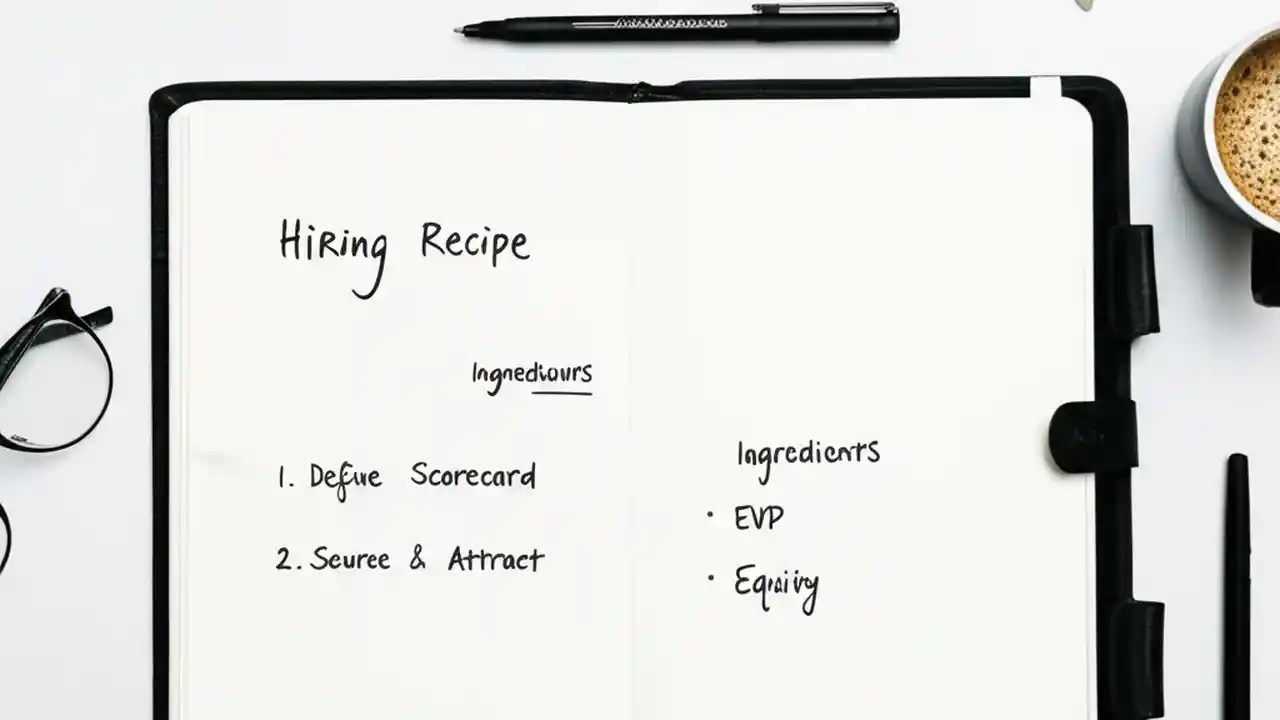 Hiring Recipe
Ingrediours
1. Define Scorecard
2. Seuree & Attract
Ingredients
• EVP
• Equity